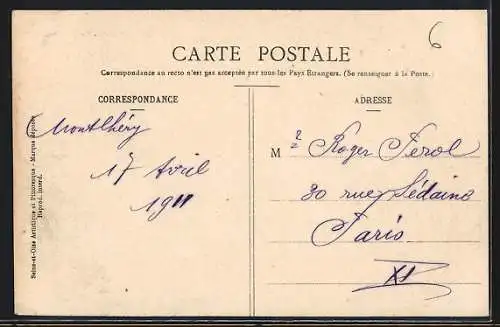 6
CARTE POSTALE
Correspondance au recto n'est pas acceptée par tous les Pays Etrangers. (Se renseigner à la Poste.)
CORRESPONDANCE
ADRESSE
Montlhéry
17 Avril
1911
M r Roger Ferol
30 rue Sédaine
Paris
XI
Seine-et-Oise Artistique et Pittoresque - Marque déposée
Reprod. interd.